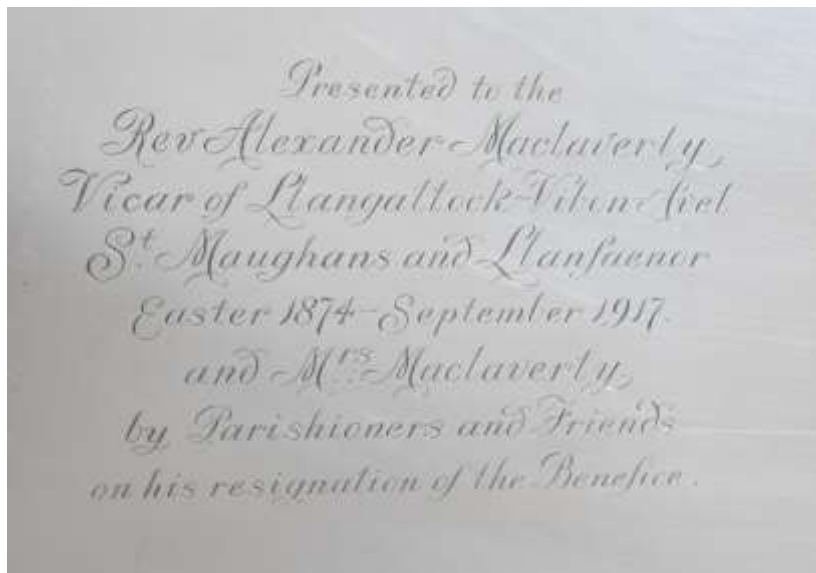 Presented to the
Rev Alexander Maclaverty,
Vicar of Llangattock-Vibon-Avel
St. Maughans and Llanfaenor
Easter 1874-September 1917.
and Mrs. Maclaverty,
by Parishioners and Friends
on his resignation of the Benefice.